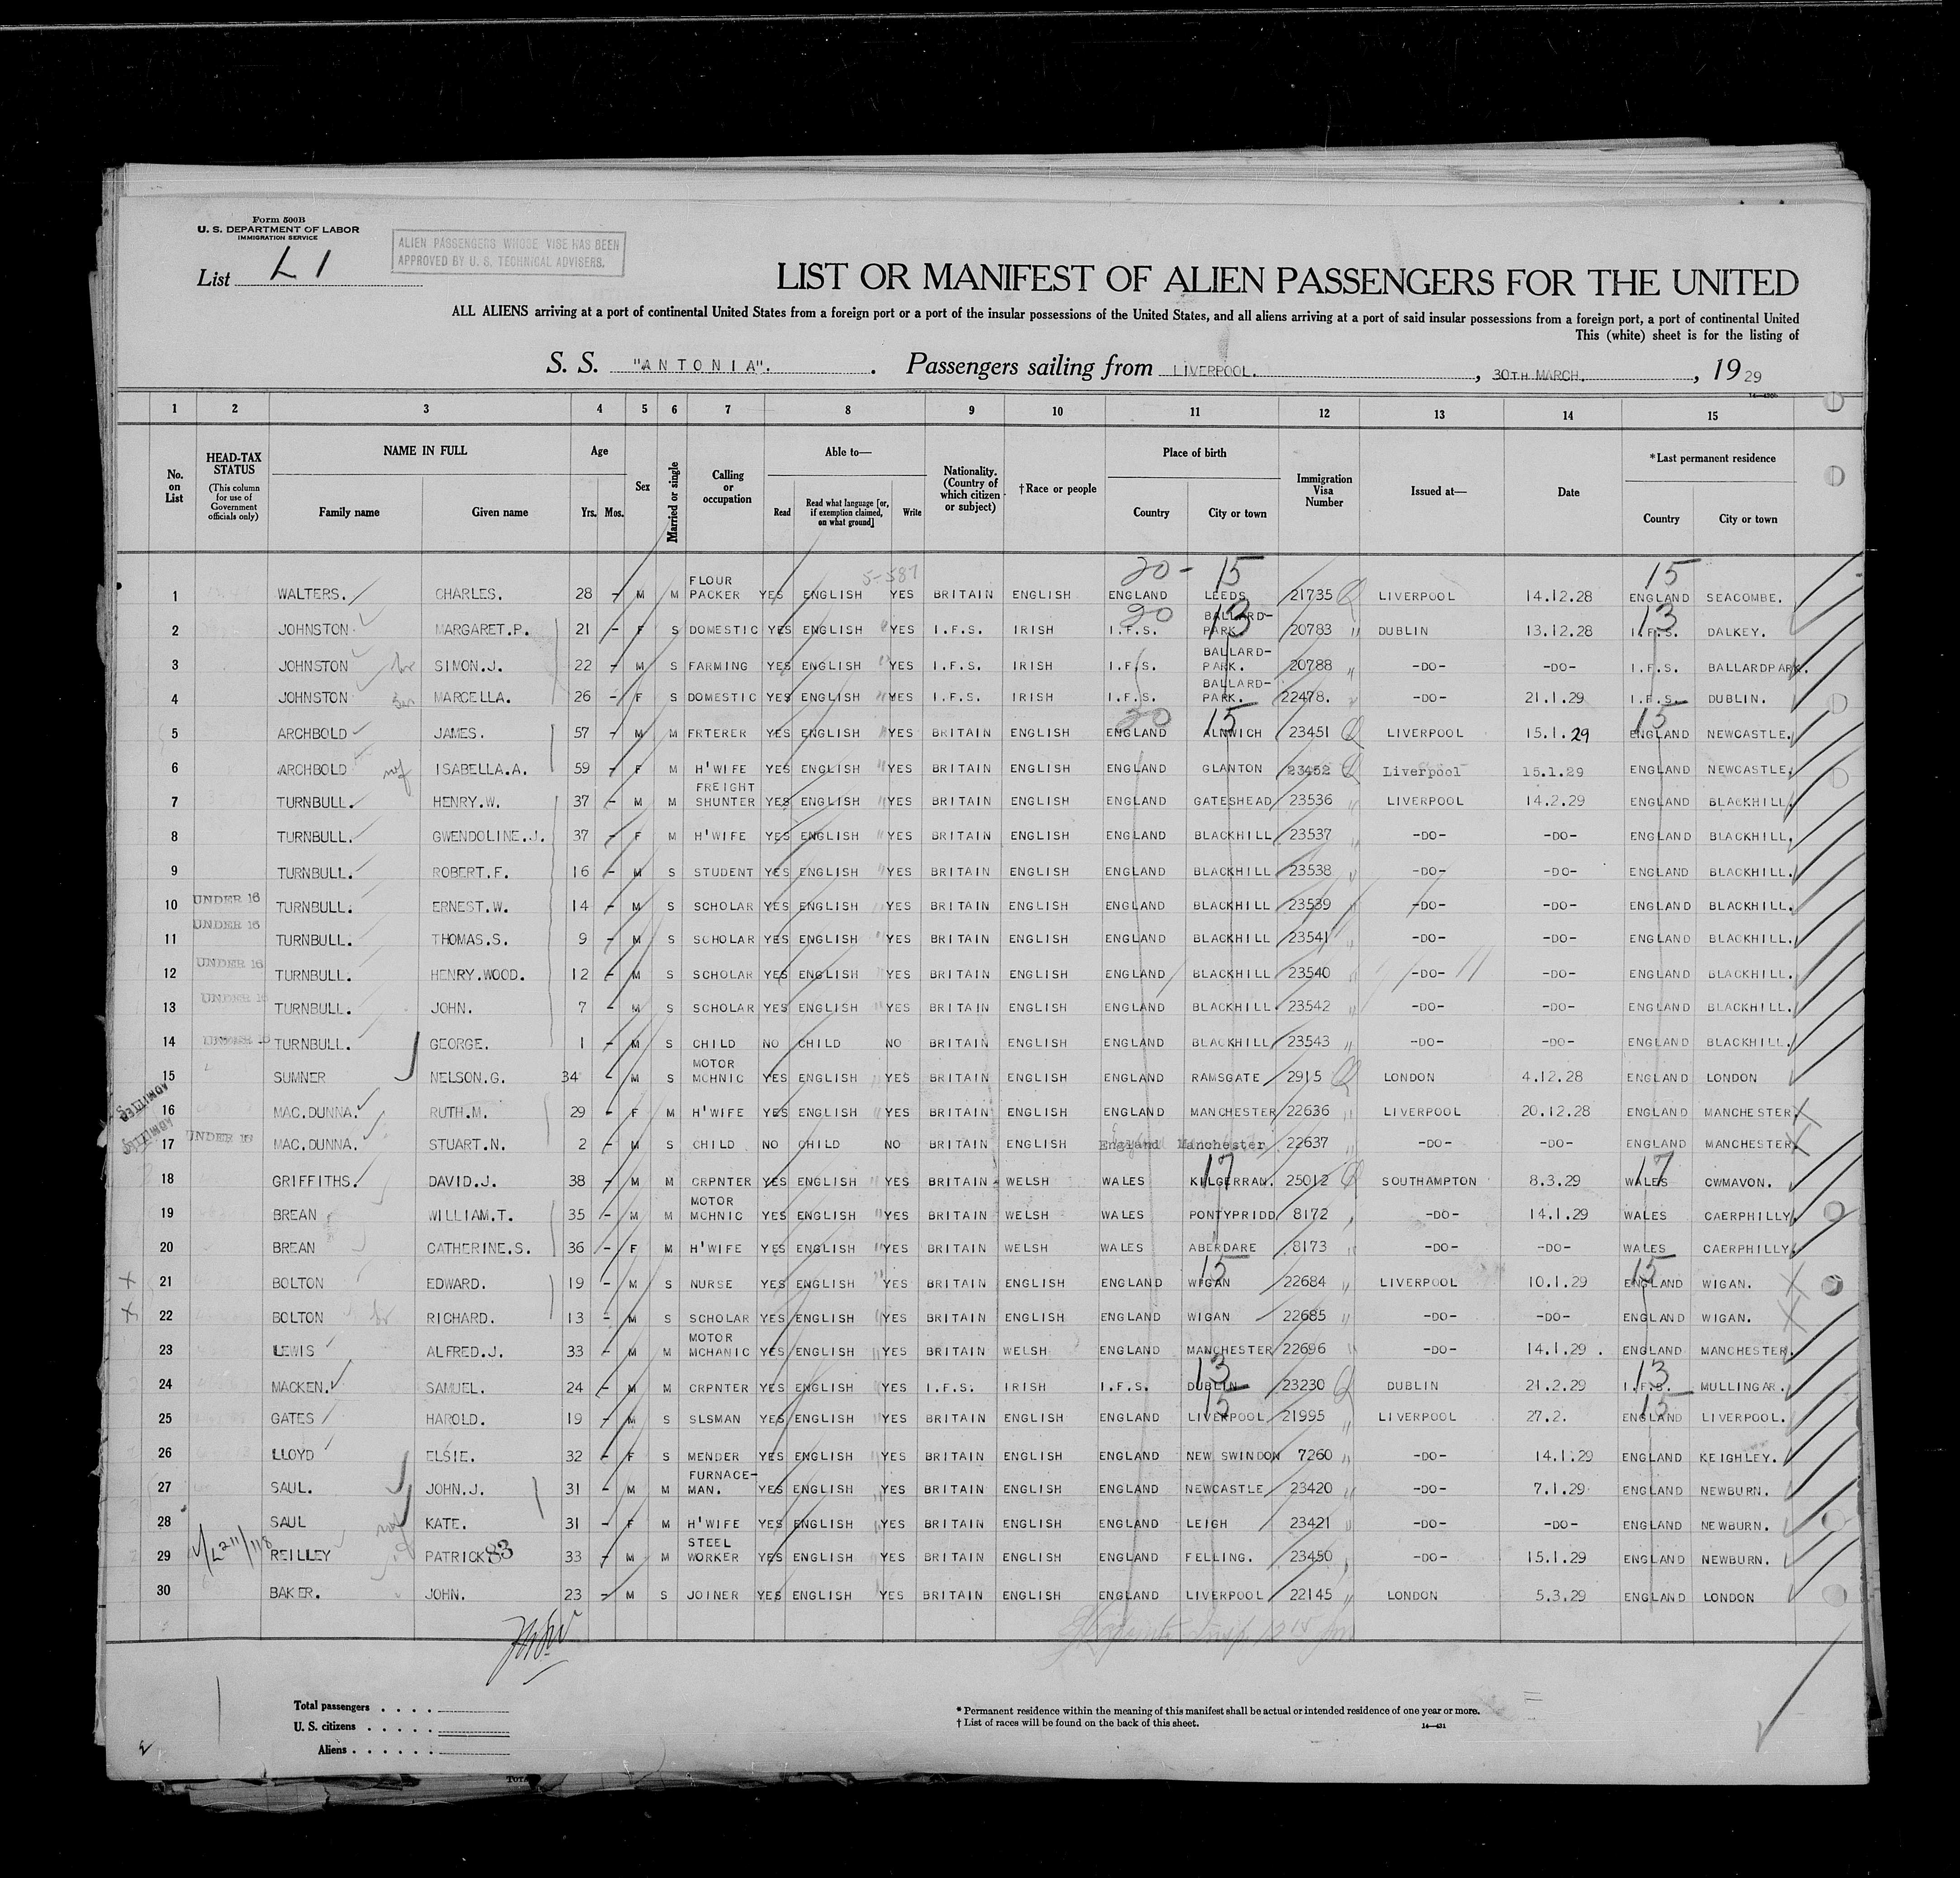 Form 500B
U. S. DEPARTMENT OF LABOR
IMMIGRATION SERVICE
List L 1
ALIEN PASSENGERS WHOSE VISE HAS BEEN
APPROVED BY U. S. TECHNICAL ADVISERS.
LIST OR MANIFEST OF ALIEN PASSENGERS FOR THE UNITED
ALL ALIENS arriving at a port of continental United States from a foreign port or a port of the insular possessions of the United States, and all aliens arriving at a port of said insular possessions from a foreign port, a port of continental United
This (white) sheet is for the listing of
S. S. "ANTONIA". Passengers sailing from LIVERPOOL. , 30TH MARCH. , 1929
1 2 3 4 5 6 7 8 9 10 11 12 13 14 15
No. on List
HEAD-TAX STATUS (This column for use of Government officials only)
NAME IN FULL
Family name Given name
Age
Yrs. Mos.
Sex
Married or single
Calling or occupation
Able to—
Read Read what language [or, if exemption claimed, on what ground] Write
Nationality. (Country of which citizen or subject)
†Race or people
Place of birth
Country City or town
Immigration Visa Number
Issued at—
Date
*Last permanent residence
Country City or town
5-587 20- 15 15
1 WALTERS. CHARLES. 28 - M M FLOUR PACKER YES ENGLISH YES BRITAIN ENGLISH ENGLAND LEEDS 21735 LIVERPOOL 14.12.28 ENGLAND SEACOMBE.
20 13 13
2 JOHNSTON MARGARET.P. 21 - F S DOMESTIC YES ENGLISH YES I.F.S. IRISH I.F.S. BALLARD-PARK 20783 DUBLIN 13.12.28 I.F.S. DALKEY.
3 JOHNSTON br SIMON.J. 22 - M S FARMING YES ENGLISH YES I.F.S. IRISH I.F.S. BALLARD-PARK. 20788 -DO- -DO- I.F.S. BALLARDPARK.
4 JOHNSTON MARCELLA. 26 - F S DOMESTIC YES ENGLISH YES I.F.S. IRISH I.F.S. BALLARD-PARK. 22478. -DO- 21.1.29 I.F.S. DUBLIN.
20 15 15
5 ARCHBOLD JAMES. 57 - M M FRTERER YES ENGLISH YES BRITAIN ENGLISH ENGLAND ALNWICH 23451 LIVERPOOL 15.1.29 ENGLAND NEWCASTLE.
6 ARCHBOLD wf ISABELLA.A. 59 - F M H'WIFE YES ENGLISH YES BRITAIN ENGLISH ENGLAND GLANTON 23452 Liverpool 15.1.29 ENGLAND NEWCASTLE.
7 TURNBULL. HENRY.W. 37 - M M FREIGHT SHUNTER YES ENGLISH YES BRITAIN ENGLISH ENGLAND GATESHEAD 23536 LIVERPOOL 14.2.29 ENGLAND BLACKHILL.
8 TURNBULL. GWENDOLINE.J. 37 - F M H'WIFE YES ENGLISH YES BRITAIN ENGLISH ENGLAND BLACKHILL 23537 -DO- -DO- ENGLAND BLACKHILL.
9 TURNBULL. ROBERT.F. 16 - M S STUDENT YES ENGLISH YES BRITAIN ENGLISH ENGLAND BLACKHILL 23538 -DO- -DO- ENGLAND BLACKHILL.
10 UNDER 16 TURNBULL. ERNEST.W. 14 - M S SCHOLAR YES ENGLISH YES BRITAIN ENGLISH ENGLAND BLACKHILL 23539 -DO- -DO- ENGLAND BLACKHILL.
11 UNDER 16 TURNBULL. THOMAS.S. 9 - M S SCHOLAR YES ENGLISH YES BRITAIN ENGLISH ENGLAND BLACKHILL 23541 -DO- -DO- ENGLAND BLACKHILL.
12 UNDER 16 TURNBULL. HENRY.WOOD. 12 - M S SCHOLAR YES ENGLISH YES BRITAIN ENGLISH ENGLAND BLACKHILL 23540 -DO- -DO- ENGLAND BLACKHILL.
13 UNDER 16 TURNBULL. JOHN. 7 - M S SCHOLAR YES ENGLISH YES BRITAIN ENGLISH ENGLAND BLACKHILL 23542 -DO- -DO- ENGLAND BLACKHILL.
14 UNDER 16 TURNBULL. GEORGE. 1 - M S CHILD NO CHILD NO BRITAIN ENGLISH ENGLAND BLACKHILL 23543 -DO- -DO- ENGLAND BLACKHILL.
15 SUMNER NELSON.G. 34 - M S MOTOR MCHNIC YES ENGLISH YES BRITAIN ENGLISH ENGLAND RAMSGATE 2915 LONDON 4.12.28 ENGLAND LONDON
ADMITTED 16 MAC.DUNNA. RUTH.M. 29 - F M H'WIFE YES ENGLISH YES BRITAIN ENGLISH ENGLAND MANCHESTER 22636 LIVERPOOL 20.12.28 ENGLAND MANCHESTER.
ADMITTED 17 UNDER 16 MAC.DUNNA. STUART.N. 2 - M S CHILD NO CHILD NO BRITAIN ENGLISH England Manchester 22637 -DO- -DO- ENGLAND MANCHESTER.
17 17
18 GRIFFITHS. DAVID.J. 38 - M M CRPNTER YES ENGLISH YES BRITAIN WELSH WALES KILGERRAN. 25012 SOUTHAMPTON 8.3.29 WALES CWMAVON.
19 BREAN WILLIAM.T. 35 - M M MOTOR MCHNIC YES ENGLISH YES BRITAIN WELSH WALES PONTYPRIDD 8172 -DO- 14.1.29 WALES CAERPHILLY.
20 BREAN CATHERINE.S. 36 - F M H'WIFE YES ENGLISH YES BRITAIN WELSH WALES ABERDARE 8173 -DO- -DO- WALES CAERPHILLY.
15 15
X 21 BOLTON EDWARD. 19 - M S NURSE YES ENGLISH YES BRITAIN ENGLISH ENGLAND WIGAN 22684 LIVERPOOL 10.1.29 ENGLAND WIGAN. X
X 22 BOLTON br RICHARD. 13 - M S SCHOLAR YES ENGLISH YES BRITAIN ENGLISH ENGLAND WIGAN 22685 -DO- -DO- ENGLAND WIGAN. X
23 LEWIS ALFRED.J. 33 - M M MOTOR MCHANIC YES ENGLISH YES BRITAIN WELSH ENGLAND MANCHESTER 22696 -DO- 14.1.29 . ENGLAND MANCHESTER.
13 13
24 MACKEN. SAMUEL. 24 - M M CRPNTER YES ENGLISH YES I.F.S. IRISH I.F.S. DUBLIN 23230 DUBLIN 21.2.29 I.F.S. MULLINGAR.
15 15
25 GATES HAROLD. 19 - M S SLSMAN YES ENGLISH YES BRITAIN ENGLISH ENGLAND LIVERPOOL 21995 LIVERPOOL 27.2. ENGLAND LIVERPOOL.
26 LLOYD ELSIE. 32 - F S MENDER YES ENGLISH YES BRITAIN ENGLISH ENGLAND NEW SWINDON 7260 -DO- 14.1.29 ENGLAND KEIGHLEY.
27 SAUL. JOHN.J. 31 - M M FURNACE-MAN. YES ENGLISH YES BRITAIN ENGLISH ENGLAND NEWCASTLE 23420 -DO- 7.1.29 ENGLAND NEWBURN.
28 SAUL wf KATE. 31 - F M H'WIFE YES ENGLISH YES BRITAIN ENGLISH ENGLAND LEIGH 23421 -DO- -DO- ENGLAND NEWBURN.
29 REILLEY PATRICK 83 33 - M M STEEL WORKER YES ENGLISH YES BRITAIN ENGLISH ENGLAND FELLING. 23450 -DO- 15.1.29 ENGLAND NEWBURN.
30 BAKER. JOHN. 23 - M S JOINER YES ENGLISH YES BRITAIN ENGLISH ENGLAND LIVERPOOL 22145 LONDON 5.3.29 ENGLAND LONDON
Total passengers . . . .
U. S. citizens . . . . .
Aliens . . . . . .
* Permanent residence within the meaning of this manifest shall be actual or intended residence of one year or more.
† List of races will be found on the back of this sheet.
14—431